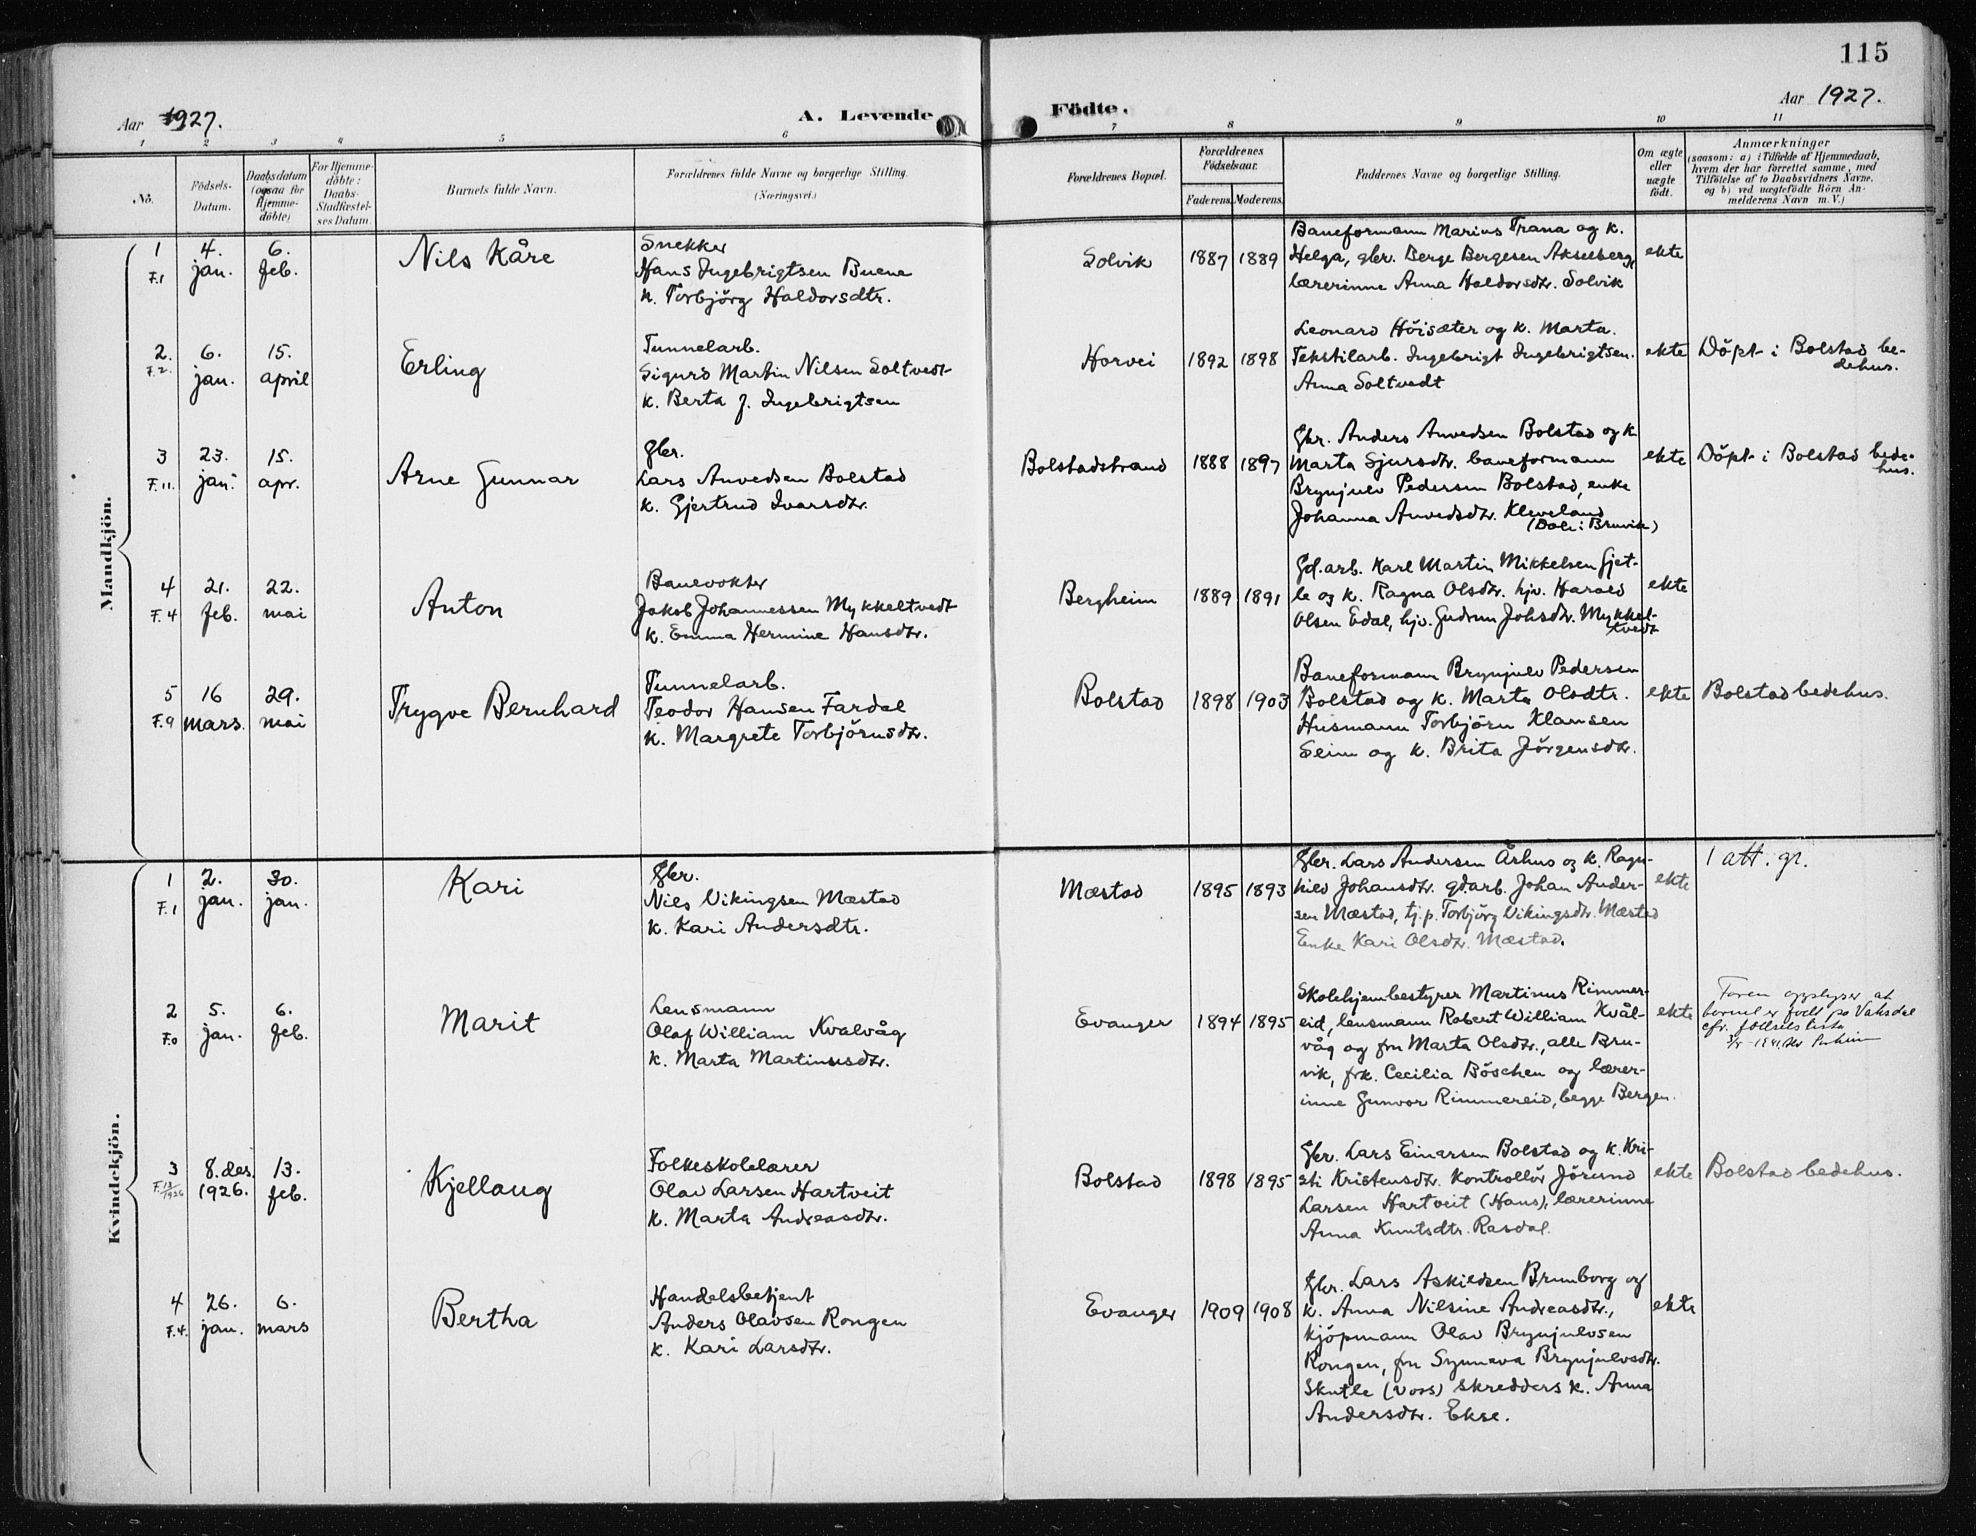 115
Aar 1927.
A. Levende Födte.
Aar 1927.
1 2 3 4 5 6 7 8 9 10 11
No.
Födsels-
Datum.
Daabsdatum
(ogsaa for
Hjemme-
döbte)
For Hjemme-
döbte:
Daabs-
Stadfæstel-
ses Datum.
Barnets fulde Navn.
Forældrenes fulde Navne og borgerlige Stilling.
(Næringsvei.)
Forældrenes Bopæl.
Forældrenes
Födselsaar.
Faderens. Moderens.
Faddernes Navne og borgerlige Stilling.
Om ægte
eller
uægte
födt.
Anmærkninger
(saasom: a) i Tilfælde af Hjemmedaab,
hvem der har forrettet samme, med
Tilföielse af to Daabsvidners Navne.
og b) ved uægtefödte Börn An-
melderens Navn m. V.)
Mandkjön.
1
F.1
4.
jan.
6.
feb.
Nils Kåre
Snekker
Hans Ingebrigtsen Buene
k. Torbjörg Haldorsdtr.
Solvik
1887 1889
Baneformann Marius Trana og k.
Helga, gbr. Berge Bergesen Akselberg,
lærerinne Anna Haldorsdtr. Solvik
ekte
2.
F.2.
6.
jan.
15.
april
Erling
Tunnelarb.
Sigurd Martin Nilsen Soltvedt
k. Berta J. Ingebrigtsen
Horvei
1892 1898
Leonard Höisæter og k. Marta.
Tekstilarb. Ingebrigt Ingebrigtsen.
Anna Soltvedt
ekte
Döpt i Bolstad be-
dehus.
3
F.11.
23.
jan.
15.
apr.
Arne Gunnar
Gbr.
Lars Anvedsen Bolstad
k. Gjertrud Ivarsdtr.
Bolstadstrand
1888 1897
Gbr. Anders Anvedsen Bolstad og k.
Marta Sjursdtr. baneformann
Brynjulv Pedersen Bolstad, enke
Johanna Anvedsdtr. Kleveland
(Dale i Bruvik)
ekte
Döpt i Bolstad bede-
hus.
4
F.4
21.
feb.
22.
mai
Anton
Banevokter
Jakob Johannessen Mykkeltvedt
k. Emma Hermine Hansdtr.
Bergheim
1889 1891
Gd.arb. Karl Martin Mikkelsen Gjet-
le og k. Ragna Olsdtr. hjv. Harald
Olsen Edal, hjv. Gudrun Johsdtr. Mykkel-
tvedt
ekte
5
F.9
16
mars.
29.
mai
Trygve Bernhard
Tunnelarb.
Teodor Hansen Fardal
k. Margrete Torbjörnsdtr.
Bolstad
1898 1903
Baneformann Brynjulv Pedersen
Bolstad og k. Marta Olsdtr.
Husmann Torbjörn Klamsen
Seim og k. Brita Jörgensdtr.
ekte
Bolstad bedehus.
Kvindekjön.
1
F.1
2.
jan.
30.
jan.
Kari
Gbr.
Nils Vikingsen Mæstad
k. Kari Andersdtr.
Mæstad
1895 1893
Gbr. Lars Andersen Århus og k. Ragn-
hild Johansdtr. gd.arb. Johan Ander-
sen Mæstad, tj.p. Torbjörg Vikingsdtr. Mæstad
Enke Kari Olsdtr. Mæstad.
ekte
1 att. gr.
2
F.0
5.
jan.
6.
feb.
Marit
Lensmann
Olaf William Kvalvåg
k. Marta Martinusdtr.
Evanger
1894 1895
Skolehjembestyrer Martinus Rimmer-
eid, lensmann Robert William Kvål-
våg og fru Marta Olsdtr., alle Bru-
vik, frk. Cecilia Böschen og lærer-
inne Gunvor Rimmereid, begge Bergen.
ekte
Faren opplyser at
barnet er född på Vaksdal
cfr. födselslista
3
F.12/1926
8. des.
1926.
13.
feb.
Kjellaug
Folkeskolelærer
Olav Larsen Hartveit
k. Marta Andreasdtr.
Bolstad
1898 1895
Gbr. Lars Einarsen Bolstad og k. Kri-
sti Kristensdtr. Kontrollör Jörund
Larsen Hartveit (Hans), lærerinne
Anna Knutsdtr. Rasdal.
ekte
Bolstad bedehus.
4
F.4.
26.
jan.
6.
mars
Bertha
Handelsbetjent
Anders Olavsen Rongen
k. Kari Larsdtr.
Evanger
1909 1908
Gbr. Lars Askildsen Brunborg og
k. Anna Nilsine Andreasdtr.,
kjöpmann Olav Brynjulvsen
Rongen, fru Synneva Brynjulvsdtr.
Skutle (Voss) skredders k. Anna
Andersdtr. Ekse.
ekte